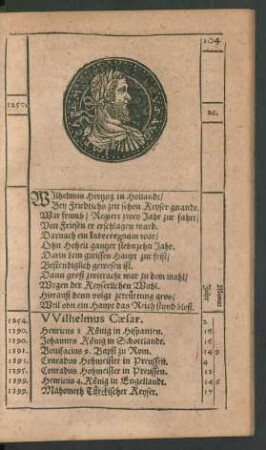 104
1250.
26.
WIlhelmus Hertzog in Hollandt/
Bey Friedrichs zur ichen Keyser gnandt.
War frumb/ Regiert zwey Jahr zur fahrt/
Von Friesen er erschlagen ward.
Darnach ein Interregnum war/
Ohn Hoheit gantzer siebntzehn Jahr.
Darin kein gwissen Haupt zur frist/
Bestendiglich gewesen ist.
Dann groß zwitracht war zu dem mahl/
Wegen der Keyserlichen Wahl.
Hierauß denn volgt zerrüttung gros/
Weil ohn ein Haupt das Reich stund bloß.
Jahr
Monat
1254. VVilhelmus Cæsar. 2
1290. Henricus 1 König in Hispanien. 16
1290. Johannes König in Schottlande. 16
1291. Bonifacius 9. Bapst zu Rom. 14 9
1291. Conradus Hohmeister in Preussen. 4
1295. Conradus Hohmeister in Preussen. 13
1299. Henricus 4. König in Engellandt. 14 6
1299. Mahometh Türckischer Keyser. 17